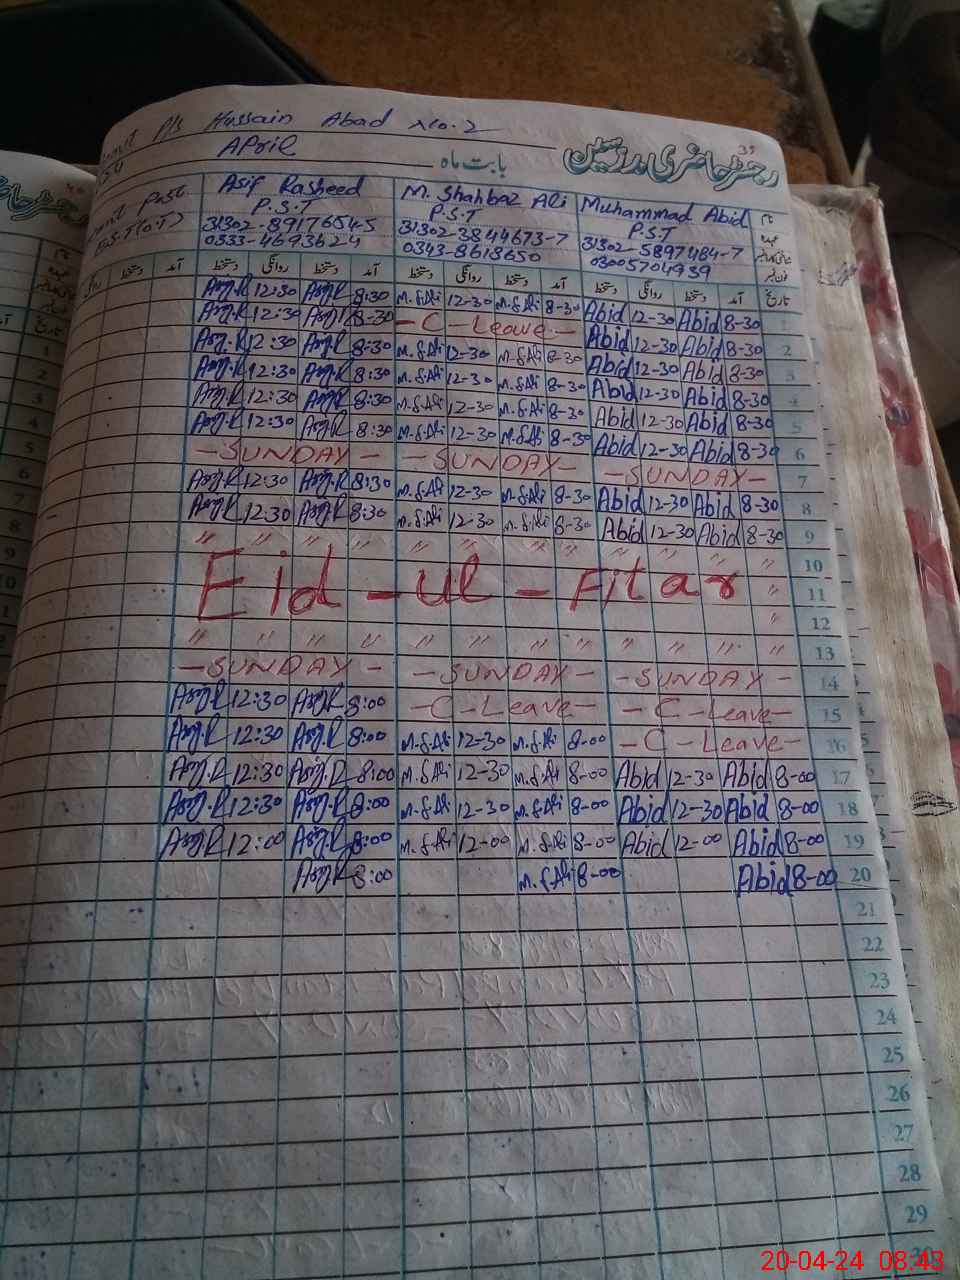 P/s Hussain Abad No. 2
35
رجسٹر حاضری مدرسین
بابت ماہ
April
Asif Rasheed
P.S.T
31302-8917654-5
0333-4693624
M. Shahbaz Ali
P.S.T
31302-3844673-7
0343-8618650
Muhammad Abid
P.S.T
31302-5897484-7
03005704939
نام
عہدہ
دستخط آمد دستخط روانگی دستخط آمد دستخط روانگی دستخط آمد دستخط روانگی دستخط آمد تاریخ
Asif.R 12:30 Asif.R 8:30 M.S.Ali 12-30 M.S.Ali 8-30 Abid 12-30 Abid 8-30 1
Asif.R 12:30 Asif.R 8-30 - C - Leave - Abid 12-30 Abid 8-30 2
Asif.R 12:30 Asif.R 8:30 M.S.Ali 12-30 M.S.Ali 8-30 Abid 12-30 Abid 8-30 3
Asif.R 12:30 Asif.R 8:30 M.S.Ali 12-30 M.S.Ali 8-30 Abid 12-30 Abid 8-30 4
Asif.R 12:30 Asif.R 8:30 M.S.Ali 12-30 M.S.Ali 8-30 Abid 12-30 Abid 8-30 5
Asif.R 12:30 Asif.R 8:30 M.S.Ali 12-30 M.S.Ali 8-30 Abid 12-30 Abid 8-30 6
- SUNDAY - - SUNDAY - - SUNDAY - 7
Asif.R 12:30 Asif.R 8:30 M.S.Ali 12-30 M.S.Ali 8-30 Abid 12-30 Abid 8-30 8
Asif.R 12:30 Asif.R 8:30 M.S.Ali 12-30 M.S.Ali 8-30 Abid 12-30 Abid 8-30 9
" " " " " " " " " " " " 10
Eid - ul - Fitar " 11
" 12
" " " " " " " " " " " " 13
- SUNDAY - - SUNDAY - - SUNDAY - 14
Asif.R 12:30 Asif.R 8:00 - C - Leave - - C - Leave - 15
Asif.R 12:30 Asif.R 8:00 M.S.Ali 12-30 M.S.Ali 8-00 - C - Leave - 16
Asif.R 12:30 Asif.R 8:00 M.S.Ali 12-30 M.S.Ali 8-00 Abid 12-30 Abid 8-00 17
Asif.R 12:30 Asif.R 8:00 M.S.Ali 12-30 M.S.Ali 8-00 Abid 12-30 Abid 8-00 18
Asif.R 12:00 Asif.R 8:00 M.S.Ali 12-00 M.S.Ali 8-00 Abid 12-00 Abid 8-00 19
Asif.R 8:00 M.S.Ali 8-00 Abid 8-00 20
21
22
23
24
25
26
27
28
29
30
20-04-24 08:43